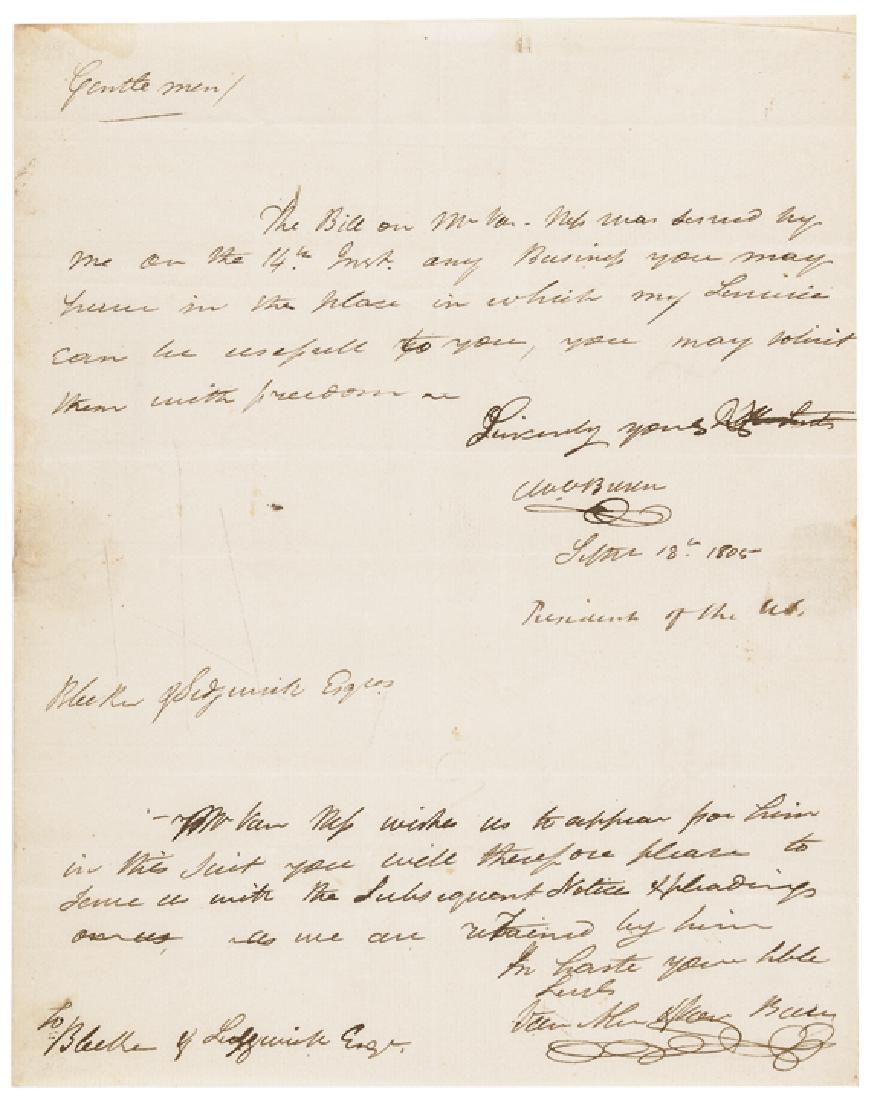 Gentlemen/
The Bill on Mr Van-Ness was served by
me on the 14th Inst. any Business you may
have in the place in which my Service
can be usefull to you, you may solicit
them with freedom ~
Sincerely yours
MVBuren
Septr 18th 1805
President of the US.
Bleeker & Sedgwick Esqrs
- Mr Van Ness wishes us to appear for him
in this Suit you will therefore please to
serve us with the Subsequent Notice & pleadings
on us, as we are retained by him
In haste your hble
Servts
Van Alen & Van Buren
To
Bleeker & Sedgwick Esqr.